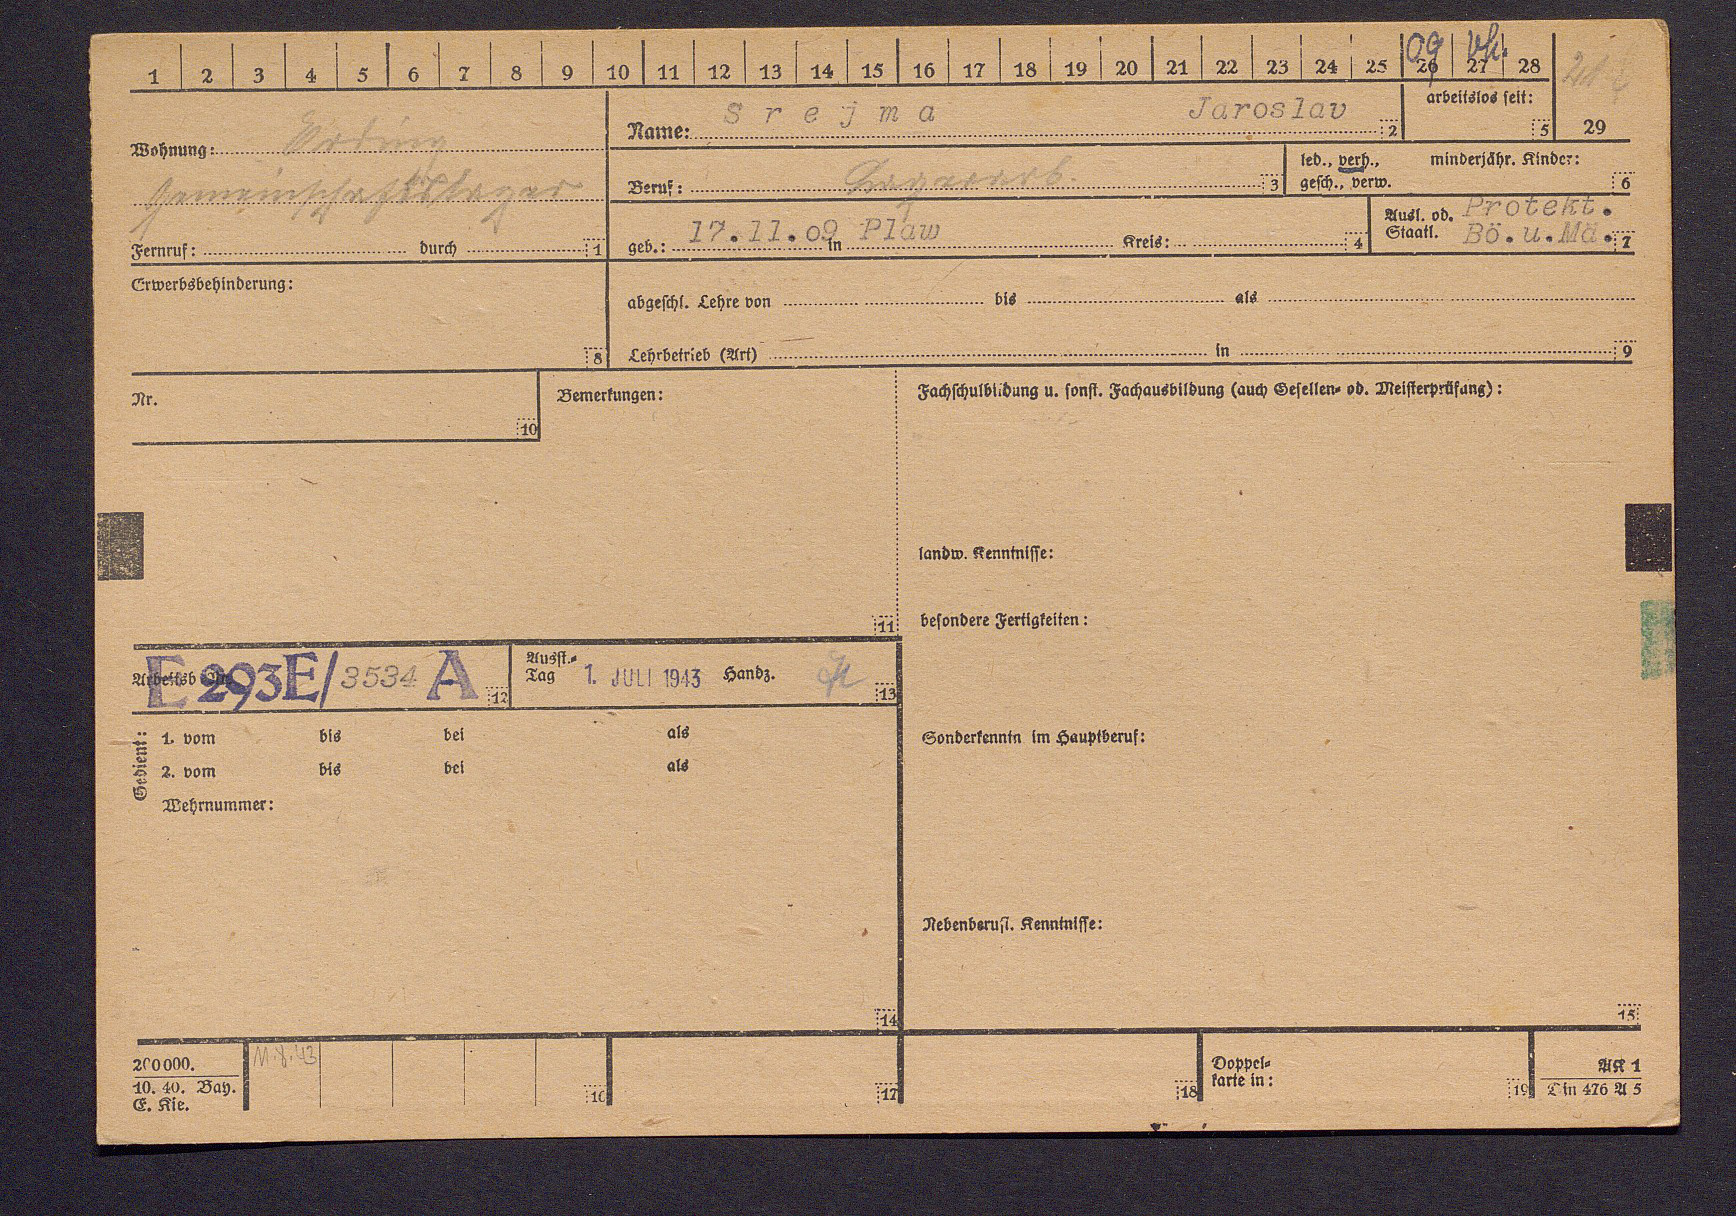 1 2 3 4 5 6 7 8 9 10 11 12 13 14 15 16 17 18 19 20 21 22 23 24 25 26 27 28
09 vh.
Name: Srejma Jaroslav 2
arbeitslos seit: 5
29
Wohnung: Erding
Gemeinschaftslager
Fernruf: durch 1
Beruf: Lagerarb. 3
led., verh., gesch., verw.
minderjähr. Kinder: 6
geb.: 17.11.09 in Plaw Kreis: 4
Ausl. od. Staatl. Protekt. Bö.u.Mä. 7
Erwerbsbehinderung: 8
abgeschl. Lehre von bis als
Lehrbetrieb (Art) in 9
Nr. 10
Bemerkungen: 11
Fachschulbildung u. sonst. Fachausbildung (auch Gesellen- od. Meisterprüfung):
landw. Kenntnisse:
besondere Fertigkeiten:
E 293E/3534 A 12
Ausst.-Tag 1. JULI 1943 Handz. 13
Sonderkenntn im Hauptberuf:
Gedient:
1. vom bis bei als
2. vom bis bei als
Wehrnummer:
14
Nebenberufl. Kenntnisse:
15
200000.
10. 40. Bay.
E. Kie.
11.8.43
16
17
18
Doppel-
karte in: 19
AK 1
Din 476 A 5